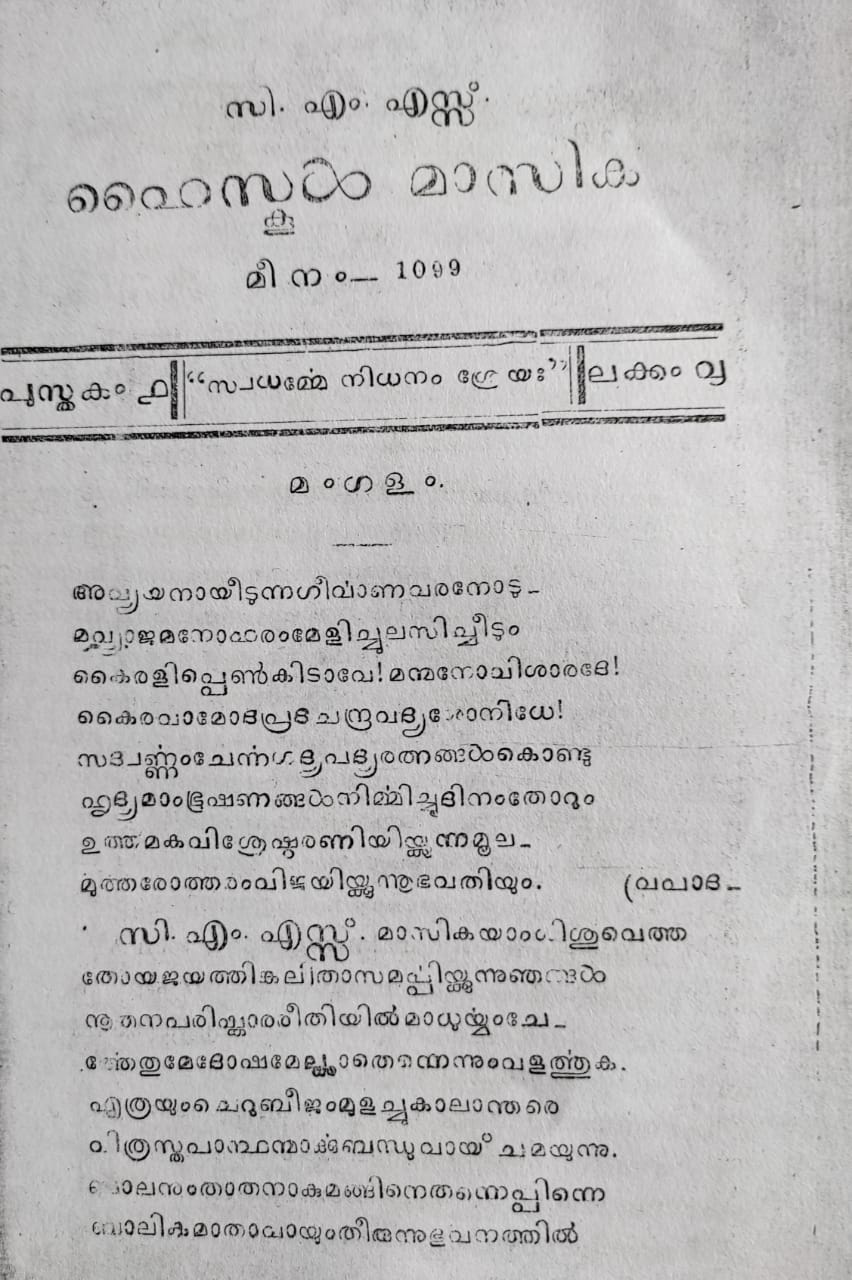 സി. എം. എസ്സ്.
ഹൈസ്ക്കൂൾ മാസിക
മീനം— 1099
പുസ്തകം ൧ “സ്വധർമ്മേ നിധനം ശ്രേയഃ” ലക്കം ൮
മംഗളം.
അവ്യയനായീടുന്നഗീർവ്വാണവരനോടു–
മവ്യാജമനോഹരംമേളിച്ചുലസിച്ചീടും
കൈരളിപ്പെൺകിടാവേ! മന്മനോവിശാരദേ!
കൈരവാമോദപ്രഭ ചന്ദ്രവദ്യശോനിധേ!
സദ്വർണ്ണംചേർന്നഗദ്യപദ്യരത്നങ്ങൾകൊണ്ടു
ഹൃദ്യമാംഭൂഷണങ്ങൾനിർമ്മിച്ചുദിനംതോറും
ഉത്തമകവിശ്രേഷ്ഠരണിയിയ്ക്കുന്നമൂല–
മുത്തരോത്തരംവിജയിയ്ക്കുന്നൂഭവതിയും. (വപാദ–
സി. എം. എസ്സ്. മാസികയാംശിശുവെത്ത
തോയജയത്തിങ്കലിതാസമർപ്പിയ്ക്കുന്നുഞങ്ങൾ
നൂതനപരിഷ്ക്കാരരീതിയിൽമാധുര്യംചേ–
ർന്നേതുമേദോഷമേല്ക്കാതെന്നെന്നുംവളർത്തുക.
എത്രയുംചെറുബീജംമുളച്ചുകാലാന്തരെ
വിത്രസ്തപാന്ഥന്മാർക്കുബന്ധുവായ് ചമയുന്നു.
ബാലനുംതാതനാകുമങ്ങിനെതന്നെപ്പിന്നെ
ബാലികമാതാവായുംതീരുന്നുഭുവനത്തിൽ